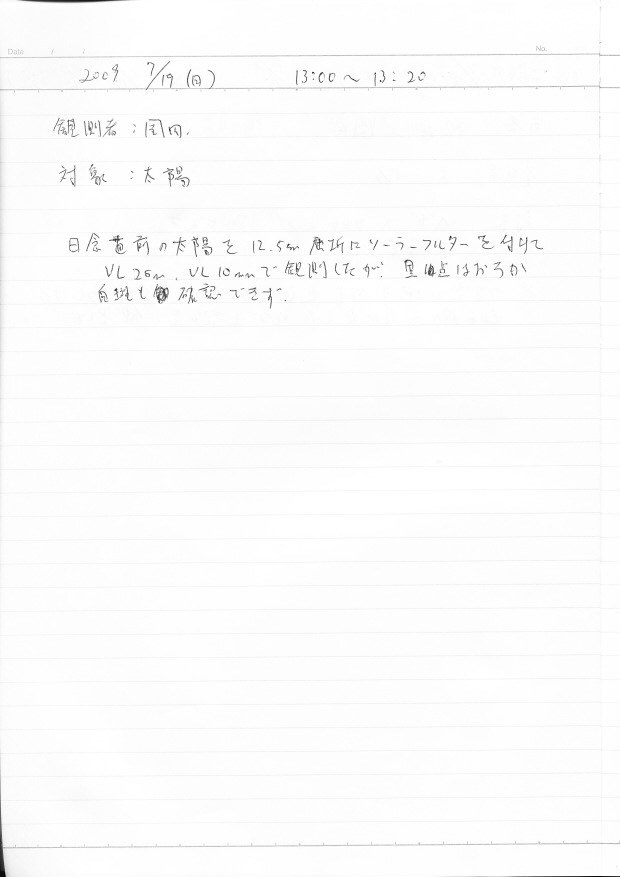 Date / /
No.
2009 7/19(日) 13:00〜13:20
観測者:国内.
対象:太陽
日食直前の太陽を12.5cm屈折にソーラーフィルターを付けて
VL26m、VL10mmで観測したが、黒点はおろか
白斑も確認できず.